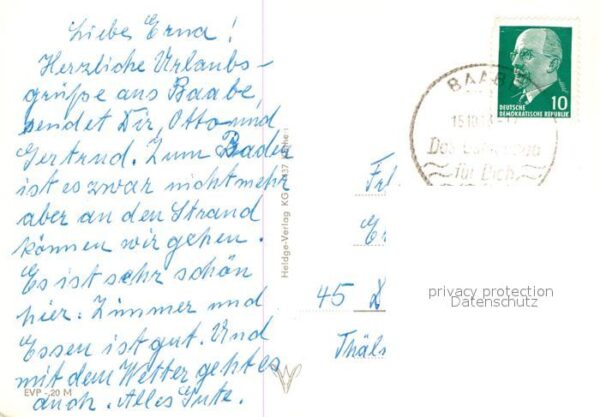 Liebe Erna!
Herzliche Urlaubs-
grüße aus Baabe,
sendet Dir, Otto und
Gertrud. Zum Baden
ist es zwar nicht mehr
aber an den Strand
können wir gehen.
Es ist sehr schön
hier. Zimmer und
Essen ist gut. Und
mit dem Wetter geht es
auch. Alles Gute.
EVP -,20 M
Heldge-Verlag KG
BAABE
15.10.
für Dich
10
DEUTSCHE
DEMOKRATISCHE REPUBLIK
Frl
Er
45 D
Thäls
privacy protection
Datenschutz